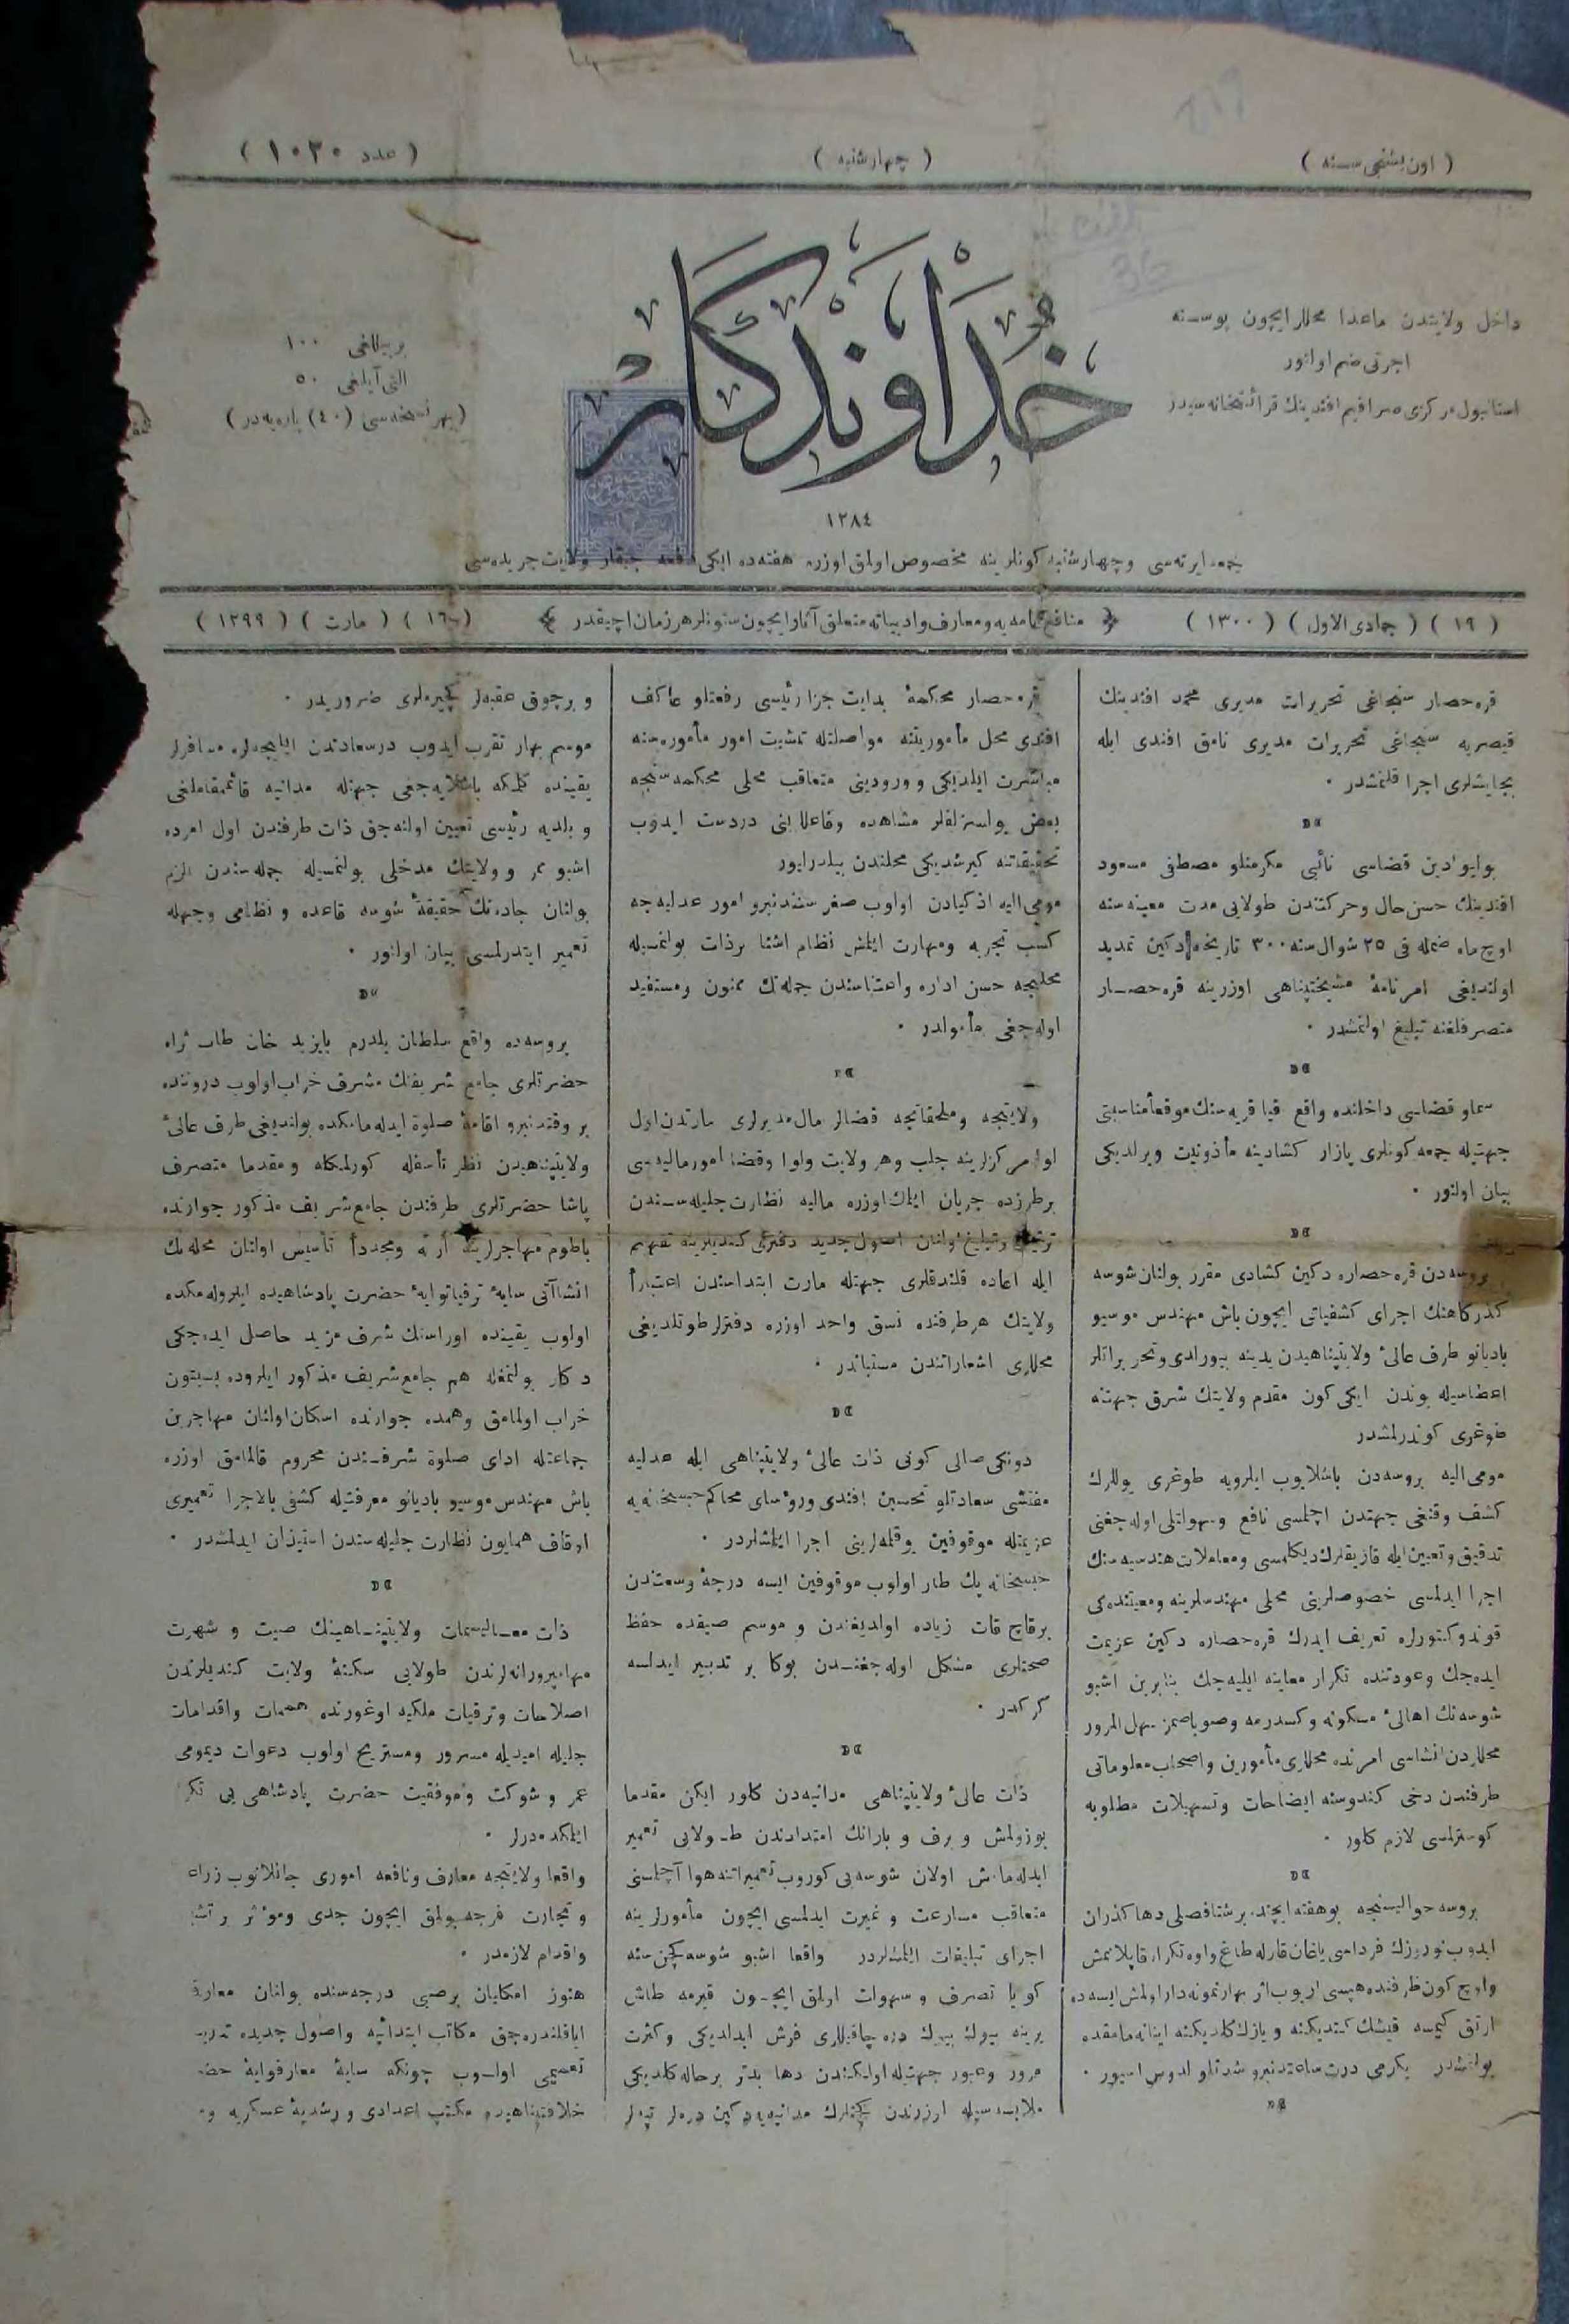 ( اون بشنجی سنه )
( چهارشنبه )
( عدد ١٠٣٠ )
داخل ولایتدن ماعدا محللر ایچون پوسته
اجرتی ضم اولنور
استانبول مرکزی سرافیم افندینك قرائتخانه سیدر
خداوندکار
١٢٨٤
بر ییللغی ١٠٠
التی آیلغی ٥٠
(بهر نسخه سی (٤٠) پاره یه در)
جمعه ایرته سی و چهارشنبه کونلرینه مخصوص اولمق اوزره هفته ده ایکی دفعه چیقار ولایت جریده سی
( ١٩ ) ( جمادی الاول ) ( ١٣٠٠ )
منافع عامه یه و معارف و ادبیاته متعلق آثار ایچون ستونلر هر زمان اچیقدر
( ١٦ ) ( مارت ) ( ١٢٩٩ )
قره حصار سنجاغی تحریرات مدیری محمد افندینك
قیصریه سنجاغی تحریرات مدیری نامق افندی ایله
بجایشلری اجرا قلنمشدر ٠
بولوادین قضاسی نائبی مکرمتلو مصطفی مسعود
افندینك حسن حال و حرکتندن طولایی مدت معینه سنه
اوچ ماه ضمله فی ٢٥ شوال سنه ٣٠٠ تاریخنه دکین تمدید
اولندیغی امرنامۀ مشیختپناهی اوزرینه قره حصـار
متصرفلغنه تبلیغ اولنمشدر ٠
سماو قضاسی داخلنده واقع قیا قریه سنك موقعاً مناسبتی
جهتیله جمعه کونلری پازار کشادینه مأذونیت ویرلدیکی
بیان اولنور ٠
بروسه دن قره حصاره دکین کشادی مقرر بولنان شوسه
کذرکاهنك اجرای کشفیاتی ایچون باش مهندس موسیو
بادیانو طرف عالیٔ ولایتپناهیدن یدینه بیورلدی و تحریراتلر
اعطاسیله بوندن ایکی کون مقدم ولایتك شرق جهتنه
طوغری کوندرلمشدر
مومی الیه بروسه دن باشلایوب ایلرویه طوغری یوللرك
کشف و قنغی جهتدن اچلسی نافع و سهولتلی اوله جغنی
تدقیق و تعیین ایله قازیقلرك دیکلمسی و معاملات هندسیه سنك
اجرا ایدلمسی خصوصلرینی محلی مهندسلرینه و معیتنده کی
قوندوکتورلره تعریف ایدرك قره حصاره دکین عزیمت
ایده جك و عودتنده تکرار معاینه ایلیه جك بنابرین اشبو
شوسه نك اهالیٔ مسکونه و کسدرمه و صو باصمز سهل المرور
محللردن انشاسی امرنده محللری مأمورین و اصحاب معلوماتی
طرفندن دخی کندوسنه ایضاحات و تسهیلات مطلوبه
کوسترلمسی لازم کلور ٠
بروسه حوالیسنجه بو هفته ایچنده بر شتا فصلی دها کذران
ایدوب نوروزك فرداسی یاغان قارله طاغ و اوه تکرار قاپلانمش
و اوچ کون ظرفنده هپسی اریوب اثر بهار نمونه دار اولمش ایسه ده
ارتق کیمسه قیشك کتدیکنه و یازك کلدیکنه اینانه مامقده
بولنمشدر یکرمی درت ساعتدنبرو شدتلو لودوس اسیور ٠
قره حصار محکمۀ بدایت جزا رئیسی رفعتلو عاکف
افندی محل مأموریتنه مواصلتله تمشیت امور مأموره سنه
مباشرت ایلدیکی و ورودینی متعاقب محلی محکمه سنجه
بعض یولسزلقلر مشاهده و فاعللرینی دردست ایدوب
تحقیقاتنه کیرشدیکی محلندن بیلدریلیور
مومی الیه اذکیادن اولوب صغر سنندنبرو امور عدلیه جه
کسب تجربه و مهارت ایلمش نظام اشنا برذات بولنمسیله
محلیجه حسن اداره و اعتناسندن جمله نك ممنون و مستفید
اوله جغی مأمولدر ٠
ولایتجه و ملحقاتجه قضالر مال مدیرلری مارتدن اول
لوا مرکزلرینه جلب و هر ولایت و لوا و قضا امور مالیه سی
بر طرزده جریان ایتمك اوزره مالیه نظارت جلیله سندن
ترتیب و تبلیغ اولنان اصول جدید دفترلری کندیلرینه تفهیم
ایله اعاده قلندقلری جهتله مارت ابتداسندن اعتباراً
ولایتك هر طرفنده نسق واحد اوزره دفترلر طوتلدیغی
محللری اشعاراتندن مستباندر ٠
دونکی صالی کونی ذات عالیٔ ولایتپناهی ایله عدلیه
مفتشی سعادتلو تحسین افندی و رؤسای محاکم حبسخانه یه
عزیمتله موقوفین یوقلمه لرینی اجرا ایلمشلردر ٠
حبسخانه پك طار اولوب موقوفین ایسه درجۀ وسعتندن
برقاچ قات زیاده اولدیغندن و موسم صیفده حفظ
صحتلری مشکل اوله جغندن بوکا بر تدبیر ایدلسه
کرکدر ٠
ذات عالیٔ ولایتپناهی مدانیه دن کلور ایکن مقدما
بوزولمش و برف و بارانك امتدادندن طـولایی تعمیر
ایدله مامش اولان شوسه یی کوروب تعمیراتنه هوا آچلسنی
متعاقب مسارعت و غیرت ایدلمسی ایچون مأمورلرینه
اجرای تبلیغات ایلمشلردر واقعا اشبو شوسه کچن سنه
کویا تصرف و سهولت اولمق ایچـون قیرمه طاش
یرینه بیوك بیوك دره چاقیللری فرش ایدلدیکی و کثرت
مرور و عبور جهتیله اولکندن دها بدتر برحاله کلدیکی
ملابسه سیله اوزرندن کچیلرك مدانیه یه دکین دره لر تپه لر
و برچوق عقبه لر کچیرملری ضروریدر ٠
موسم بهار تقرب ایدوب درسعادتدن ایلیجه لره مسافرلر
یقینده کلمکه باشلایه جغی جهتله مدانیه قائممقاملغی
و بلدیه رئیسی تعیین اولنه جق ذات طرفندن اول امرده
اشبو ممر و ولایتك مدخلی بولنمسیله جمله سندن الزم
بولنان جاده نك حقیقۀ شوسه قاعده و نظامی وجهله
تعمیر ایتدرلمسی بیان اولنور ٠
بروسه ده واقع سلطان یلدرم بایزید خان طاب ثراه
حضرتلری جامع شریفنك مشرف خراب اولوب دروننده
بر وقتدنبرو اقامۀ صلوة ایدله مامکده بولندیغی طرف عالیٔ
ولایتپناهیدن نظر تأسفله کورلمکله و مقدما متصرف
پاشا حضرتلری طرفندن جامع شریف مذکور جوارنده
باطوم مهاجرلرینه و مجدداً تأسیس اولنان محله نك
انشاآتی سایۀ ترقیاتوایۀ حضرت پادشاهیده ایلروله مکده
اولوب یقینده اوراسنك شرف مزید حاصل ایده جکی
درکار بولنمغله هم جامع شریف مذکور ایلروده بسبتون
خراب اولمامق و همده جوارنده اسکان اولنان مهاجرین
جماعتله ادای صلوة شرفندن محروم قالمامق اوزره
باش مهندس موسیو بادیانو معرفتیله کشفی بالاجرا تعمیری
اوقاف همایون نظارت جلیله سندن استیذان ایدلمشدر ٠
ذات معـالیسمات ولایتپنـاهینك صیت و شهرت
مهامپرورانه لرندن طولایی سکنۀ ولایت کندیلرندن
اصلاحات و ترقیات ملکیه اوغورنده همات و اقدامات
جلیله امیدیله مسرور و مستریح اولوب دعوات دیمومی
عمر و شوکت و موفقیت حضرت پادشاهی یی تکر
ایلمکده درلر ٠
واقعا ولایتجه معارف و نافعه اموری جانلانوب زراع
و تجارت فرجه بولمق ایچون جدی و موثر بر تشـ
و اقدام لازمدر ٠
هنوز امکایان برصبی درجه سنده بولنان معارف
ایاقلندره جق مکاتب ابتدائیه و اصول جدیده تدریـ
تعمیمی اولـوب چونکه سایۀ معارفوایۀ حضـ
خلافتپناهیده مکتب اعدادی و رشدیۀ عسکریه و